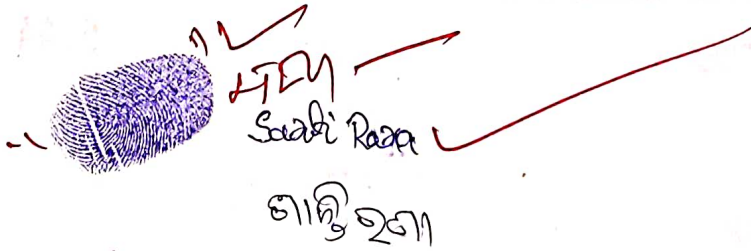 Saati Rana
ଶାନ୍ତି ରଣା